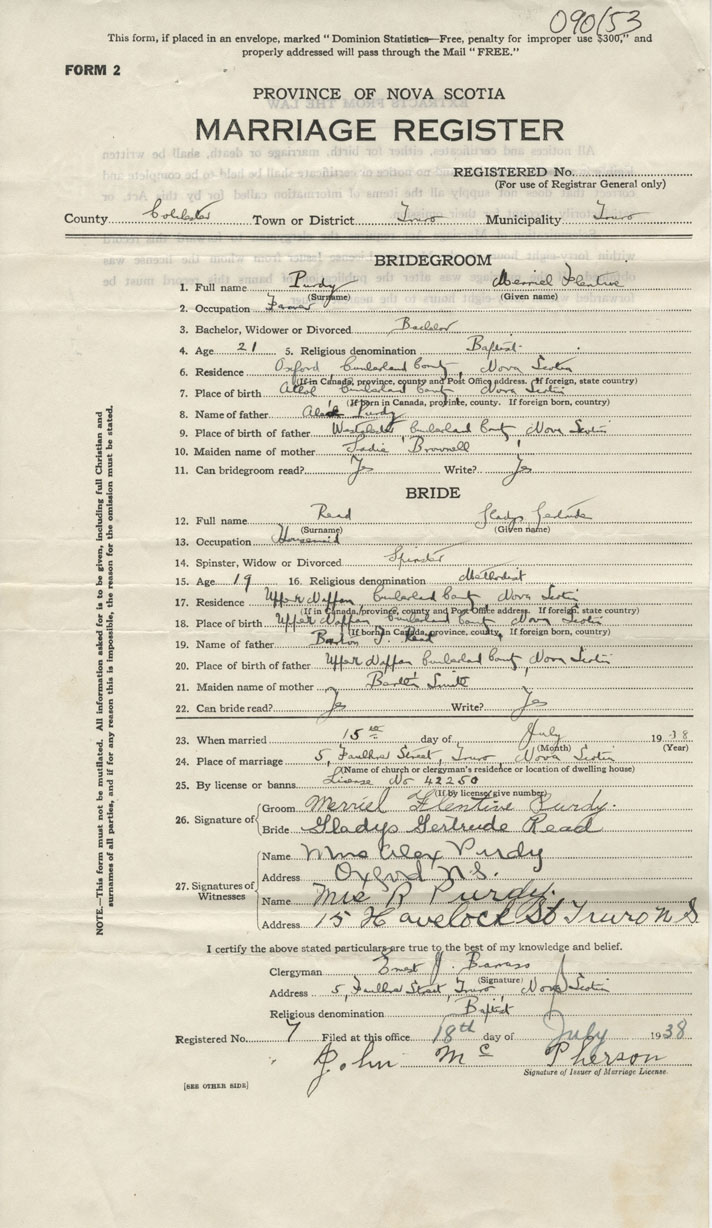 090153
This form, if placed in an envelope, marked "Dominion Statistics—Free, penalty for improper use $300," and
properly addressed will pass through the Mail "FREE."
FORM 2
PROVINCE OF NOVA SCOTIA
MARRIAGE REGISTER
REGISTERED No.
(For use of Registrar General only)
County Colchester Town or District Truro Municipality Truro
BRIDEGROOM
1. Full name Purdy Merriel Flentive
(Surname) (Given name)
2. Occupation Farmer
3. Bachelor, Widower or Divorced Bachelor
4. Age 21 5. Religious denomination Baptist
6. Residence Oxford Cumberland County, Nova Scotia
(If in Canada, province, county and Post Office address. If foreign, state county)
7. Place of birth Cumberland County Nova Scotia
(If born in Canada, province, county. If foreign born, country)
8. Name of father Purdy
9. Place of birth of father Westchester Cumberland County Nova Scotia
10. Maiden name of mother Sadie Brownell
11. Can bridegroom read? Yes Write? Yes
BRIDE
12. Full name Read Gladys Gertrude
(Surname) (Given name)
13. Occupation Housemaid
14. Spinster, Widow or Divorced Spinster
15. Age 19 16. Religious denomination Methodist
17. Residence Upper Nappan Cumberland County Nova Scotia
(If in Canada, province, county and Post Office address. If foreign, state county)
18. Place of birth Upper Nappan Cumberland County Nova Scotia
(If born in Canada, province, county. If foreign born, country)
19. Name of father Read
20. Place of birth of father Upper Nappan Cumberland County, Nova Scotia
21. Maiden name of mother Smith
22. Can bride read? Yes Write? Yes
23. When married 15th day of July 1938
(Month) (Year)
24. Place of marriage 5, Faulkner Street, Truro Nova Scotia
(Name of church or clergyman's residence or location of dwelling house)
25. By license or banns License No 42250
(If by license, give number)
26. Signature of Groom Merriel Flentive Purdy.
Bride Gladys Gertrude Read
27. Signatures of Witnesses
Name Mrs Alex Purdy
Address Oxford N.S.
Name R Purdy.
Address 15 Havelock St Truro N S
I certify the above stated particulars are true to the best of my knowledge and belief.
Clergyman Ernest J. Barrass
(Signature)
Address 5, Faulkner Street, Truro Nova Scotia
Religious denomination Baptist
Registered No. 7 Filed at this office 18th day of July 1938
John McPherson
Signature of Issuer of Marriage License.
[SEE OTHER SIDE]
NOTE.—This form must not be mutilated. All information asked for is to be given, including full Christian and
surnames of all parties, and if for any reason this is impossible, the reason for the omission must be stated.